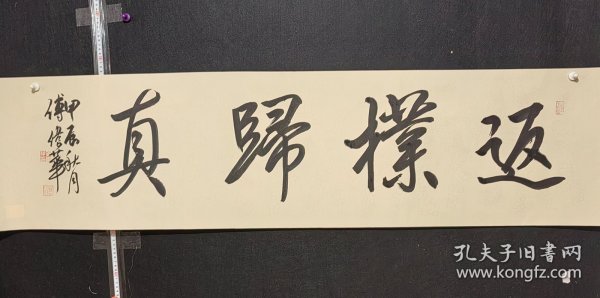 返樸歸真
甲辰秋月
傅偉華
孔夫子旧书网
www.kongfz.com